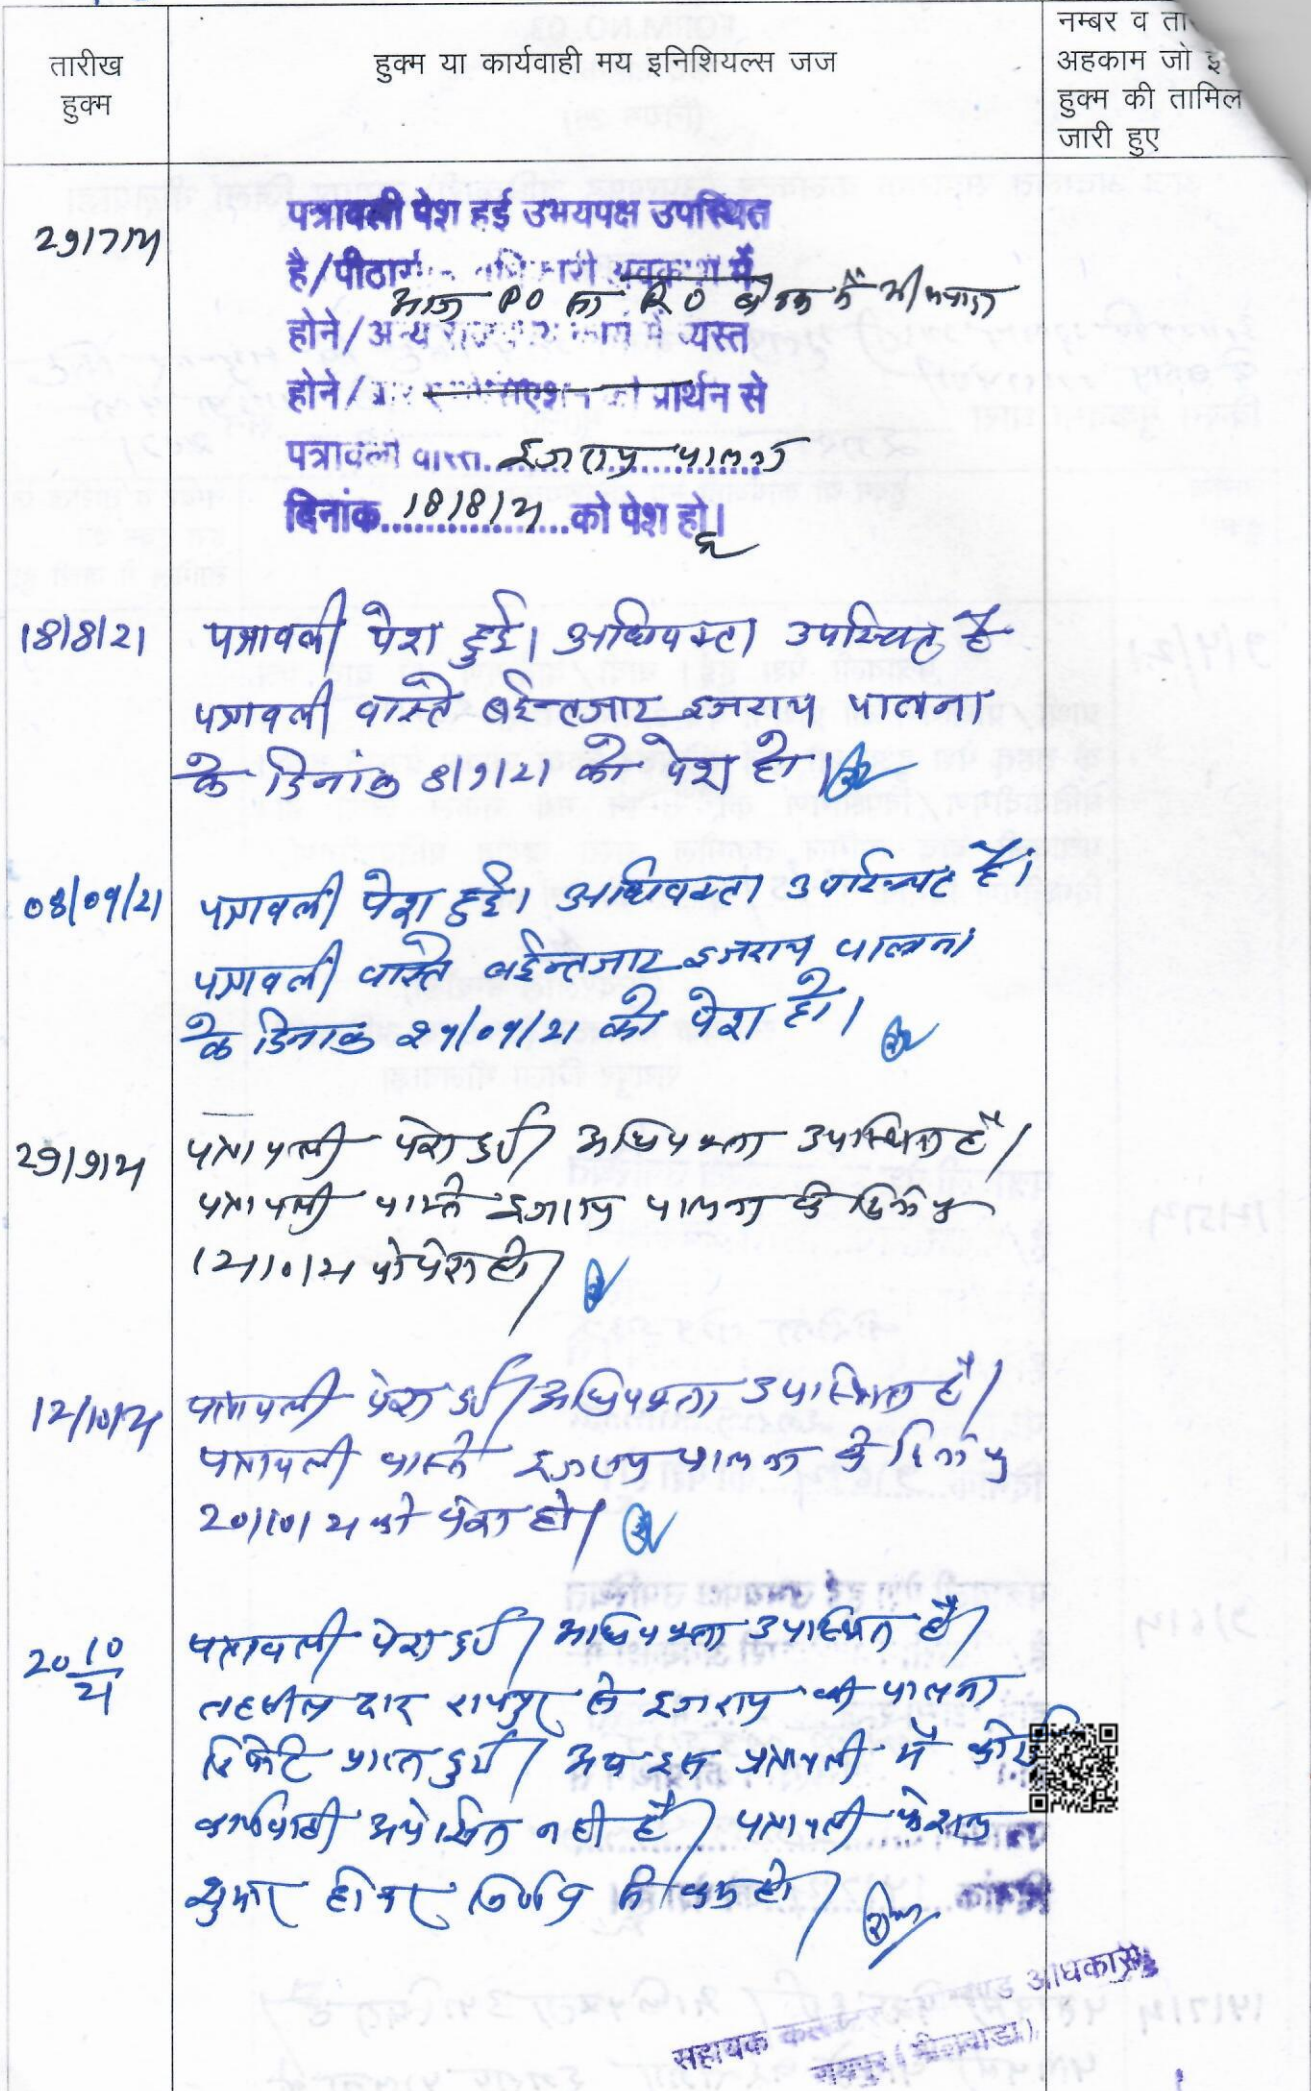 तारीख
हुक्म
हुक्म या कार्यवाही मय इनिशियल्स जज
नम्बर व
अहकाम जो
हुक्म की तामिल
जारी हुए
29/7/21
पत्रावली पेश हुई उभयपक्ष उपस्थित
है/पीठासीन अधिकारी अवकाश में
आज PO का RO बैठक में
होने/अन्य राजकीय कार्य में व्यस्त
होने/बार एसोसिएशन की प्रार्थन से
पत्रावली वास्ते इजराय पालना
दिनांक 18/8/21 को पेश हो।
18/8/21
पत्रावली पेश हुई। अधिवक्ता उपस्थित है
पत्रावली वास्ते बईन्तजार इजराय पालना
के दिनांक 8/9/21 को पेश हो।
08/09/21
पत्रावली पेश हुई। अधिवक्ता उपस्थित है।
पत्रावली वास्ते बईन्तजार इजराय पालना
के दिनांक 29/09/21 को पेश हो।
29/9/21
पत्रावली पेश हुई। अधिवक्ता उपस्थित है।
पत्रावली वास्ते इजराय पालना के दिनांक
12/10/21 को पेश हो।
12/10/21
पत्रावली पेश हुई। अधिवक्ता उपस्थित है।
पत्रावली वास्ते इजराय पालना के दिनांक
20/10/21 को पेश हो।
20 10/21
पत्रावली पेश हुई। अधिवक्ता उपस्थित है।
तहसीलदार रायपुर से इजराय की पालना
रिपोर्ट प्राप्त हुई। अब इस पत्रावली में कोई
कार्यवाही अपेक्षित नही है। पत्रावली फैसल
शुमार होकर हो।
सहायक
रायपुर (भीलवाडा)